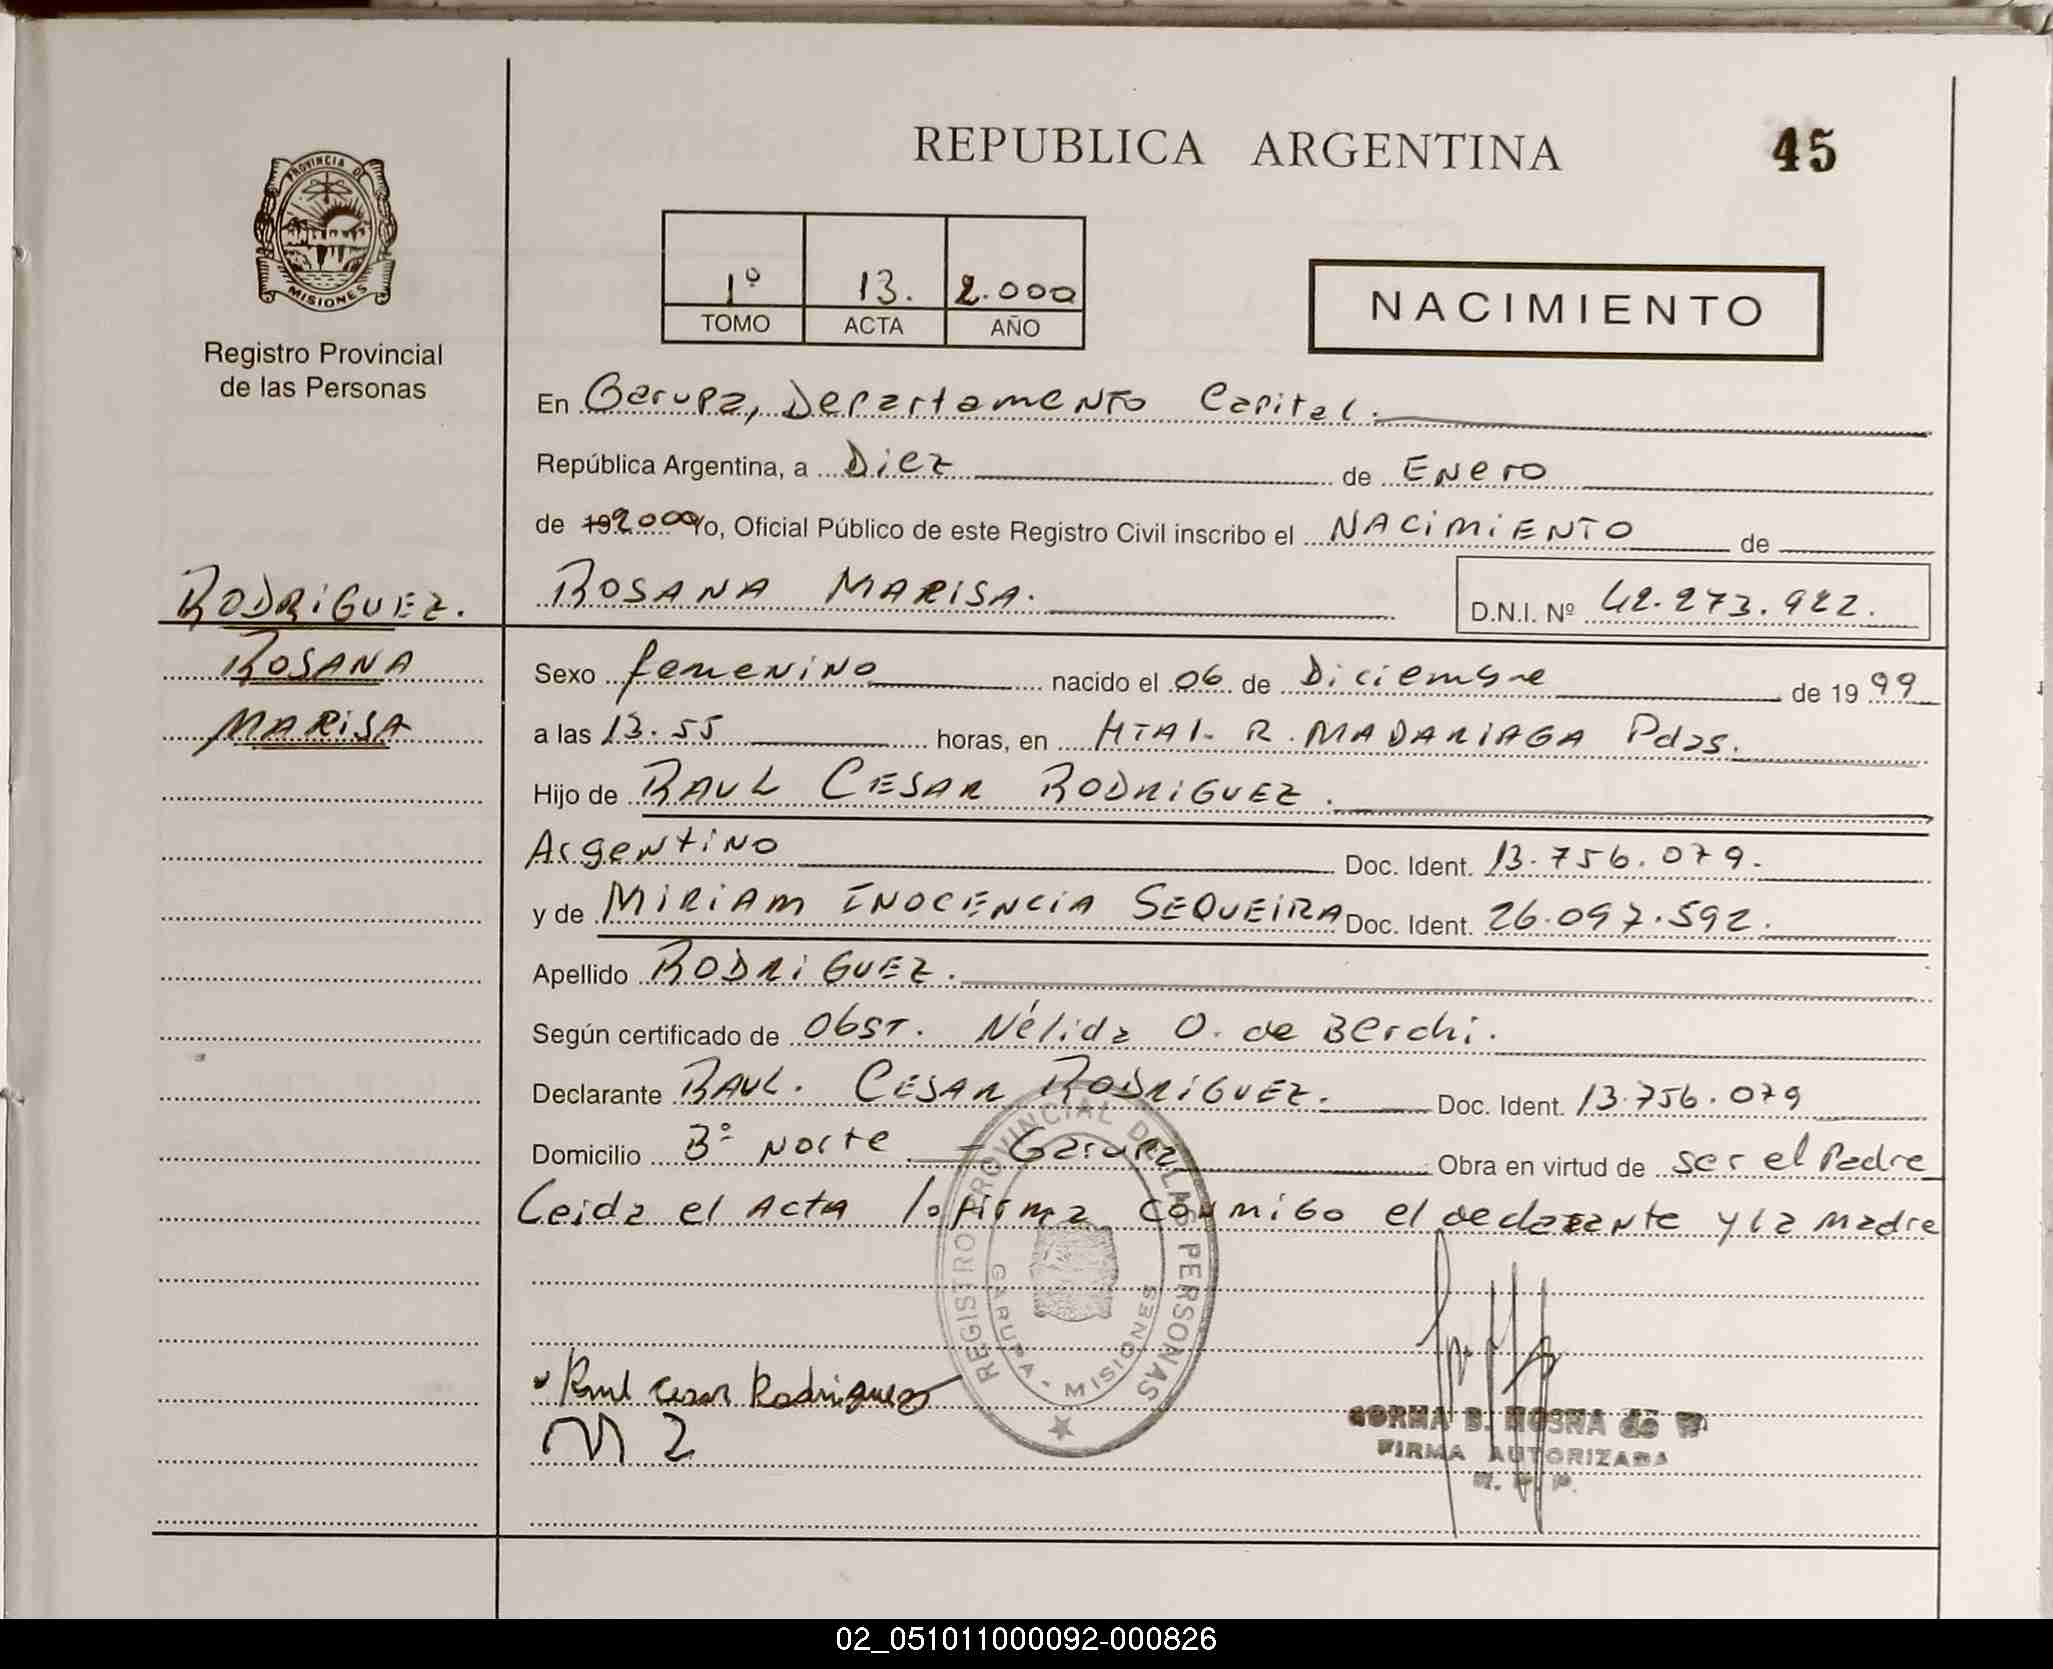 REPUBLICA ARGENTINA
45
PROVINCIA DE
MISIONES
Registro Provincial
de las Personas
1º 13. 2.000
TOMO ACTA AÑO
NACIMIENTO
En Garupa, Departamento Capital.
República Argentina, a Diez de Enero
de 2000 Yo, Oficial Público de este Registro Civil inscribo el NACIMIENTO de
RODRIGUEZ.
ROSANA MARISA.
D.N.I. Nº 42.273.922.
ROSANA
MARISA
Sexo femenino nacido el 06 de Diciembre de 1999
a las 13.55 horas, en HTAL. R. MADARIAGA Pdas.
Hijo de RAUL CESAR RODRIGUEZ.
Argentino Doc. Ident. 13.756.079.
y de MIRIAM INOCENCIA SEQUEIRA Doc. Ident. 26.097.592.
Apellido RODRIGUEZ.
Según certificado de Obst. Nélida O. de Berchi.
Declarante RAUL. CESAR RODRIGUEZ. Doc. Ident. 13.756.079
Domicilio Bº Norte - Garupa Obra en virtud de ser el Padre
Leida el Acta lo firma conmigo el declarante y la madre
REGISTRO PROVINCIAL DE LAS PERSONAS
GARUPA - MISIONES
Raul Cesar Rodriguez
FIRMA AUTORIZADA
02_051011000092-000826